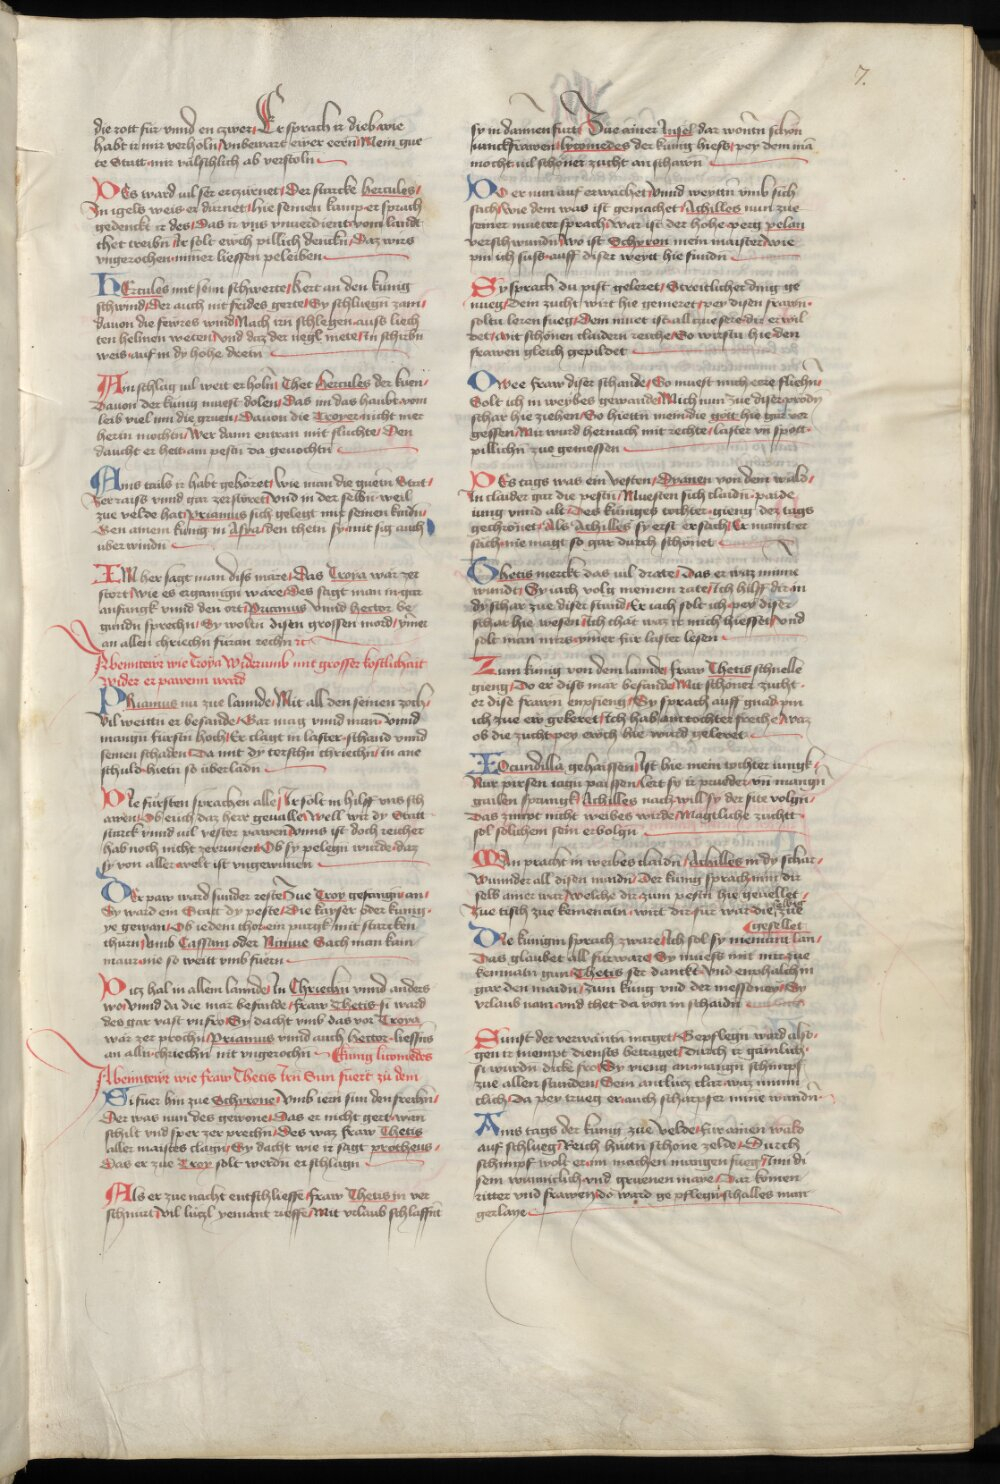 7.
die rott für vnnd en zwer / Er sprach ir dieb wie
habt ir mir verholn / vnbewart ewer eern / Mein gue
te Statt mir välschlich ab verstoln
DEs ward vil ser erczürnet / Der starcke hercules /
In igels weis er darnet / hie seinen kampf er sprach
gedenckt ir des / Das ir vns vnuerdient vom lanndt
thet treibn / Ir solt ewch pillich denckn / Daz wirs
vngerochen nimer liessen peleiben
HErcules mit seim schwerte / Kert an den künig
schwind / Der auch mit frides gerte / Sy schluegn zam /
dauon die fewres wind / Nach irn schlegen auss liech
ten helmen weten / Vnd daz der negl mete / In schirbn
weis auf in dy hohe drein
Ain schlag vil weit erholn / Thet hercules der kuen /
Dauon der künig muest dolen / Das im das haubt vom
leib viel inn die gruen / Dauon die Troyer nicht mer
herttn mochtn / Wer dann entran mit fluchte / Den
daucht er hett am pestn da geuochtn
Ains tails ir habt gehöret / wie man die guetn Stat /
Zerraiss vnnd gar zerstöret / Vnd in der selbn weil
zue velde hat / Priamus sich gelegt mit seinen kindn /
Gen ainem künig in Asya / den thetn sy mit sig auch
überwindn
IM her sagt man diss märe / Das Troya wär zer
stört / wie es ergangn wäre / Des sagt man in gar
anfangk vnnd den ort / Priamus vnnd hector be
gundn sprechn / Sy woltn disen grossen mord / ymer
an allen chriechn füran rechn etc
Abenntewr wie Troya Widerumb mit grosser kostlichait
wider er pawenn ward
PRiamus nu zue lannde / Mit all den seinen zoch /
Vil weittn er besande / Gar mag vnnd man / Vnnd
mangn fürstn hoch / Er clagt in laster schand vnnd
seinen schaden / Da mit dy terschn chriechn / in ane
schuld hietn so überladn
DIe fürsten sprachen alle / Ir solt in hilff vns sch
awen / Ob euch daz herr geualle / Well wir dy Statt
starck vnnd vil vester pawen / Vnns ist doch reicher
hab noch nicht zerunnen / Ob sy pelegn wurde / daz
sy von aller welt ist vngewunnen
DEr paw ward sunder reste / Zue Troy gefangn an /
Sy ward ein Statt dy peste / Die kayser oder künig
ye gewan / Ob iedem thor ein purgk / mit starcken
thurn / vmb Cassam oder Niniue Sach man kain
maur nie so weitt vmb fuern
DItz hal in allem lannde / In Chriechn vnnd anders
wo / Vnnd da die mär besande / fraw Thetis si ward
des gar vast vnfro / Sy dacht vmb das vor Troya
wär zer prochn / Priamus vnnd auch hector liessns
an alln chriechn nit vngerochn Künig licomedes
Abenntewr wie fraw Thetis Irn Sun fuert zu dem
SI fuer hin zue Schyrone / Vmb iern sun den frechn /
Der was nun des gewone / Das er nicht gert wan
schilt vnd sper zer prechn / Des waz fraw Thetis
aller maistes clagn / Sy dacht wie ir sagt protheus /
Das er zue Troy solt werdn erschlagn
Als er zue nacht entschlieffe / fraw Thetis in ver
schnurt / Vil lützl yemant rieffe / Mit vrlaub schlaffnt
sy in dannen furt / Zue ainer Insel dar wontn schön
junckfrawen / Lycomedes der künig hiess / pey dem ma
mocht vil schöner zucht an schawn
DO er nun auf erwachet / vnnd weyttn vmb sich
sach / wie dem was ist gemachet / Achilles nun zue
seiner mueter sprach / war ist der hohe perg pelan
verschwundn / Wo ist Schyron mein maister / wie
pin ich suss auff diser weytt hie fundn
Sy sprach du pist geleret / Streitlicher ding ge
nueg / Dem zucht wirt hie gemeret / pey disen frawn
soltu leren fueg / Dem muet ist all zue sere / dir er wil
det / mit schönen claidern reiche / So wirstu hie den
frawen gleich gepildet
Owee fraw diser schande / So muest mich eere fliehn /
Solt ich in weybes gewande / Mich nun zue diser prody
schar hie ziehen / So hiettn mein die gött hie gar ver
gessen / Mir wurd hernach mit rechte / laster vn spott
pillichn zue gemessen
DEs tags was ein vesten / Dyanen von dem wald /
In claider gar die pestn / Muesten sich claidn paide
iung vnnd alt / Des küniges tochter gieng des tags
gechrönet / Als Achilles sy erst ersach / Er maint er
säch nie magt so gar durch schönet
Thetis merckt das vil drate / Das er waz minne
wundt / Sy iach volg meinem rate / Ich hilff dir in
dy schar zue diser stund / Er iach solt ich pey diser
schar hie wesen / Ich thät waz ir mich hiessett / vnd
solt man mirs ymer für laster lesen
Zum künig von dem lannde / fraw Thetis schnelle
gieng / Do er diss mär besande / Mit schöner zucht
er dise frawn enpfieng / Sy sprach auff gnad pin
ich zue ew gekeret / Ich hab ain tochter freche / waz
ob die zucht pey ewch hie wurd geleret
IOcundilla gehaissen / Ist hie mein tochter iungk /
Nur pirsen iagn paissen / lert sy ir prueder vn mangn
gailen sprungk / Achilles nach will sy der site volgn /
Das zimpt nicht weibes wirde / Mägtliche zuchtt
sol solichem sein erbolgn
MAn pracht in weibes claidn / Achilles in dy schar /
Wunnder all disen maidn / Der künig sprach nim dir
selb ainer war / welche dir zum pestn hie geuellet /
Zue tisch zue kemenattn / wirt dir für war die selbig zue
gesellet
DIe künigin sprach zware / Ich sol sy meining lan /
Das glaubet all fürware / Sy muess mit mir zue
kemnatn gan / Thetis ser danckt / Vnd enphalch in
gar den maidn / zum küng vnd der messeney / Sy
vrlaub nam vnd thet da von in schaidn
Sunst der verwantn maget / Gepflegn ward also /
gen ir niempt dienstes betraget / durch ir gämlich
si wurdn dicke fro / Sy vieng an mangn schimpf
zue allen stunden / Sein antlutz clar waz minni
clich / Da pey trueg er auch scharpfer mine wundn
Ains tags der künig zue velde / für ainen wald
auf schlueg / Reich hüttn schöne zelde / Durch
schimpf wolt er im machen mangen fueg / Inn di
sem wunniclich vnd gruenen maye / Dar komen
ritter vnd frawen / do ward ge pflegn schalles man
gerlaye